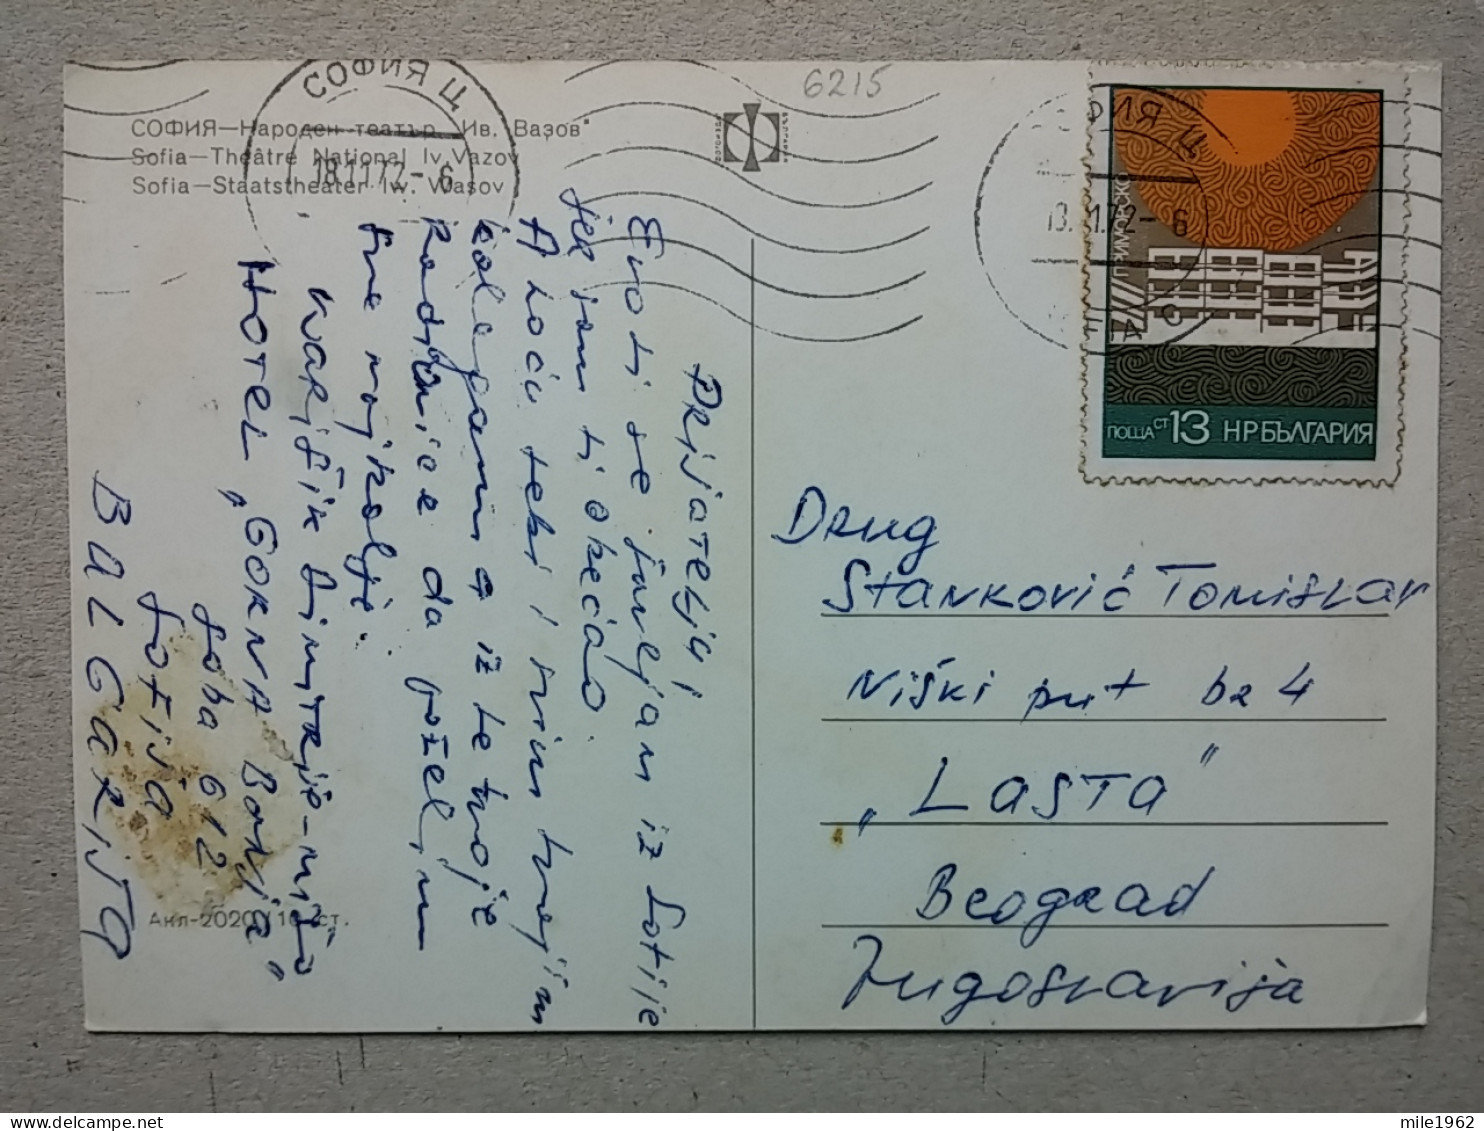 6215
СОФИЯ—Народен театър „Ив. Вазов"
Sofia—Théâtre National Iv. Vazov
Sofia—Staatstheater Iw. Wasov
СОФИЯ Ц
18.11.72-6
СОФИЯ Ц
18.11.72-6
ПОЩА СТ 13 НРБЪЛГАРИЯ
Prijatelju!
Evo ti se javljam iz Sofije
jer sam ti obećao.
A hoću tebi i svim tvojim
kolegama iz te tvoje
Radionice da poželim
sve najbolje.
Dimitrije-
HOTEL „GORNA BANJA"
soba 612
Sofija
BULGARIJA
Акл-2020 / 16 ст.
Drug
Stanković Tomislav
Niški put br 4
„LASTA"
Beograd
Jugoslavija
mile1962